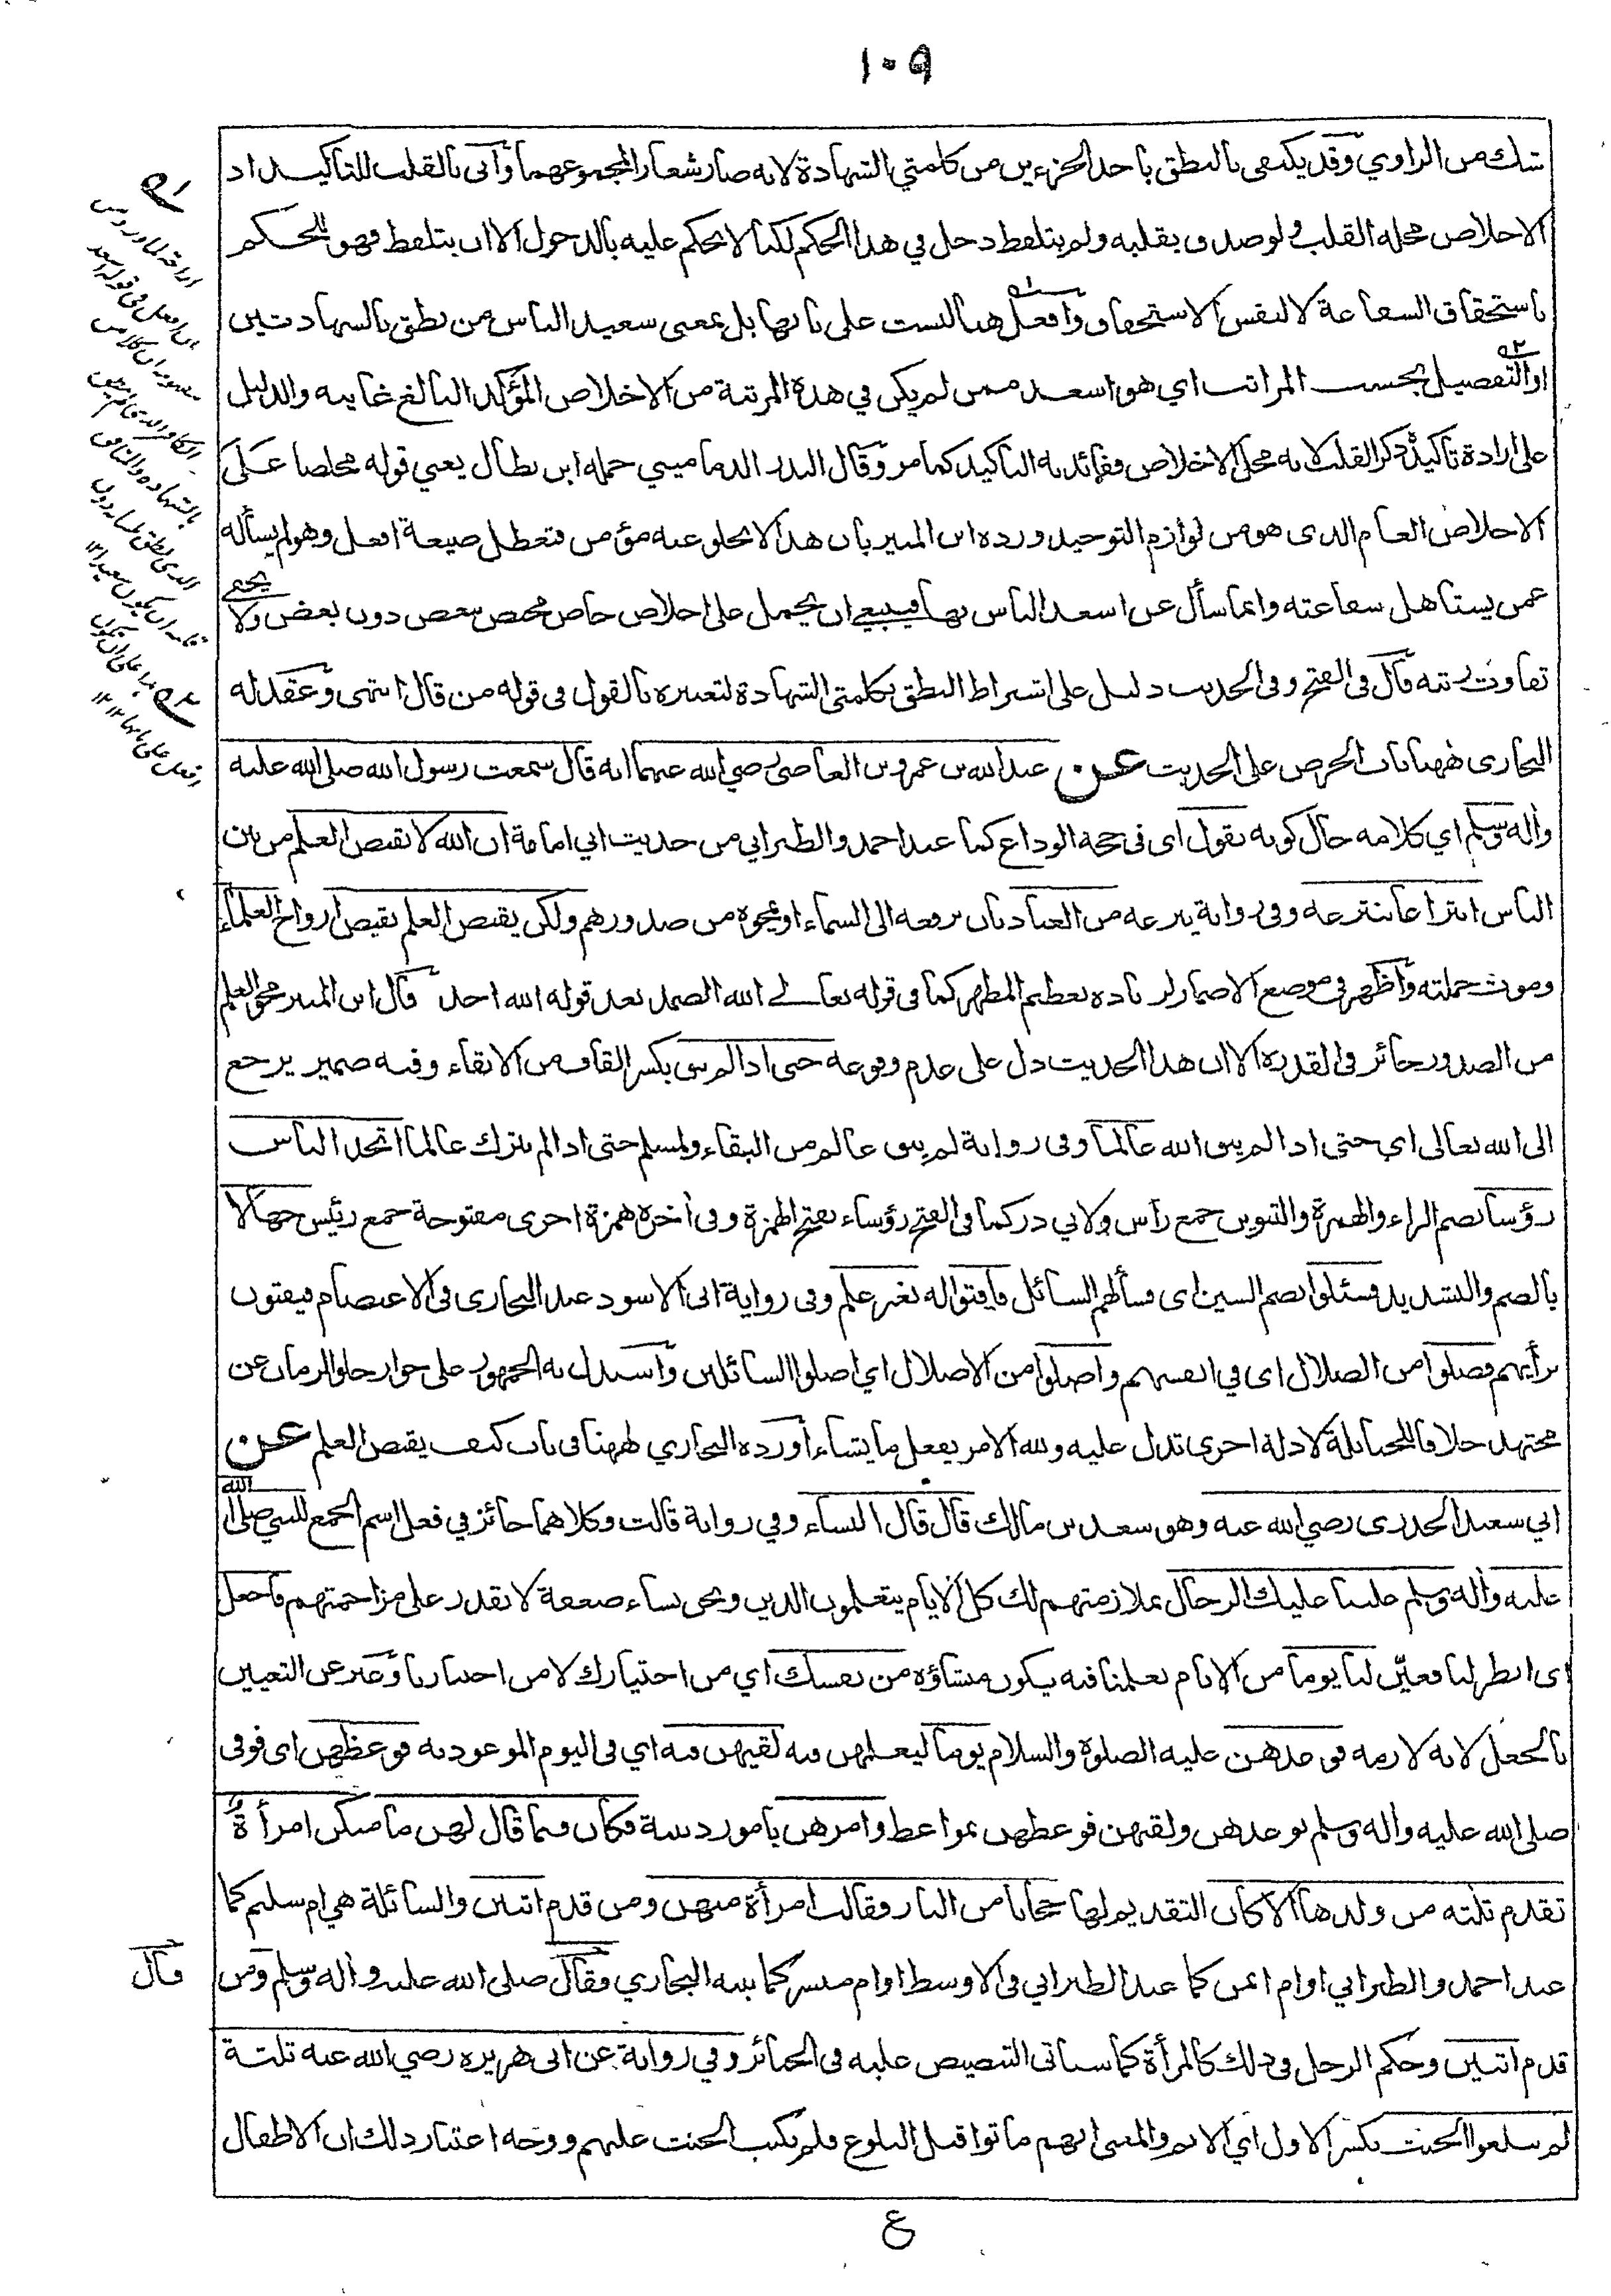 ١٠٩
شك من الراوي وقد يكتفى بالنطق باحد الجزءين من كلمتي الشهادة لانه صار شعارا لمجموعهما وأتى بالقلب للتأكيد اذ
الاخلاص محله القلب ولو صدق بقلبه ولم يتلفظ دخل في هذا الحكم لكنا لا نحكم عليه بالدخول الا ان يتلفظ فهو للحكم
باستحقاق الشفاعة لا لنفس الاستحقاق وأفعل هنا ليست على بابها بل بمعنى سعيد الناس من نطق بالشهادتين
او التفصيل بحسب المراتب اي هو اسعد ممن لم يكن في هذة المرتبة من الاخلاص المؤكد البالغ غايته والدليل
على ارادة تأكيدّ ذكر القلب لانه محل الاخلاص ففائدته التأكيد كما مر وقال البدر الدماميني حمله ابن بطال يعني قوله مخلصا على
الاخلاص العام الذى هو من لوازم التوحيد ورده ابن المنير بان هذا لا يخلو عنه مؤمن فتعطل صيغة افعل وهو لم يسأله
عمن يستاهل شفاعته وانما سأل عن اسعد الناس بها فينبغي ان يحمل على اخلاص خاص مختص ببعض دون بعض ولا يخفى
تفاوت رتبه قال فى الفتح وفى الحديث دليل على اشتراط النطق بكلمتي الشهادة لتعبيره بالقول فى قوله من قال انتهى وعقد له
البخارى ههنا باب الحرص على الحديث عن عبد الله بن عمرو بن العاص رضي الله عنهما انه قال سمعت رسول الله صلى الله عليه
وأله وسلم اي كلامه حال كونه يقول اى فى حجة الوداع كما عند احمد والطبراني من حديث ابي امامة ان الله لا يقبض العلم من بين
الناس انتزاعا ينتزعه وفى رواية ينزعه من العباد بان يرفعه الى السماء او يمحوه من صدورهم ولكن يقبض العلم بقبض ارواح العلماء
وموت حملته وأظهر فى موضع الاضمار لزيادة تعظيم المظهر كما فى قوله تعالى الله الصمد بعد قوله الله احد قال ابن المنير محو العلم
من الصدور جائز فى القدرة الا ان هذا الحديث دل على عدم وقوعه حتى اذا لم يبق بكسر القاف من الابقاء وفيه ضمير يرجع
الى الله تعالى اي حتى اذا لم يبق الله عالما وفى رواية لم يبق عالم من البقاء ولمسلم حتى اذا لم يترك عالما اتخذ الناس
رؤسا بضم الراء والهمزة والتنوين جمع رأس ولابي ذر كما فى الفتح رؤساء بفتح الهمزة وفى أخره همزة اخرى مفتوحة جمع رئيس جهالا
بالضم والتشديد فسئلوا بضم السين اى فسألهم السائل فأفتوا له بغير علم وفى رواية ابى الاسود عند البخارى فى الاعتصام فيفتون
برأيهم فضلوا من الضلال اى في انفسهم واضلوا من الاضلال اي اضلوا السائلين واستدل به الجمهور على جواز خلو الزمان عن
مجتهد خلافا للحنابلة لادلة اخرى تدل عليه ولله الامر يفعل ما يشاء أورده البخاري ههنا فى باب كيف يقبض العلم عن
ابي سعيد الخدرى رضي الله عنه وهو سعد بن مالك قال قال النساء وفي رواية قالت وكلاهما جائز في فعل اسم الجمع للنبي صلى الله
عليه وأله وسلم غلبنا عليك الرجال بملازمتهم لك كل الايام يتعلمون الدين ونحن نساء ضعفة لا نقدر على مزاحمتهم فاجعل
اى انظر لنا فعيّن لنا يوما من الايام تعلمنا فيه يكون منشأؤه من نفسك اي من اختيارك لا من اختيارنا وعبر عن التعيين
بالجعل لانه لازمه فوعدهن عليه الصلوة والسلام يوما ليعلمهن فيه لقيهن فيه اي فى اليوم الموعود به فوعظهن اى فوفى
صلى الله عليه وأله وسلم بوعدهن ولقيهن فوعظهن بمواعظ وامرهن بأمور دينية فكان فيما قال لهن ما منكن امرأةٌ
تقدم ثلثة من ولدها الا كان التقديم لها حجابا من النار وقالت امرأة منهن ومن قدم اثنين والسائلة هي ام سليم كما
عند احمد والطبراني او ام ايمن كما عند الطبراني فى الاوسط او ام مبشر كما بينه البخاري فقال صلى الله عليه وأله وسلم ومن
قال
قدم اثنين وحكم الرجل فى ذلك كالمرأة كما سيأتى التنصيص عليه فى الجنائز وفي رواية عن ابى هريره رضي الله عنه ثلثة
لم يبلغوا الحنث بكسر الاول اي الاثم والمعنى انهم ماتوا قبل البلوغ فلم يكتب الحنث عليهم ووجه اعتبار ذلك ان الاطفال
ع